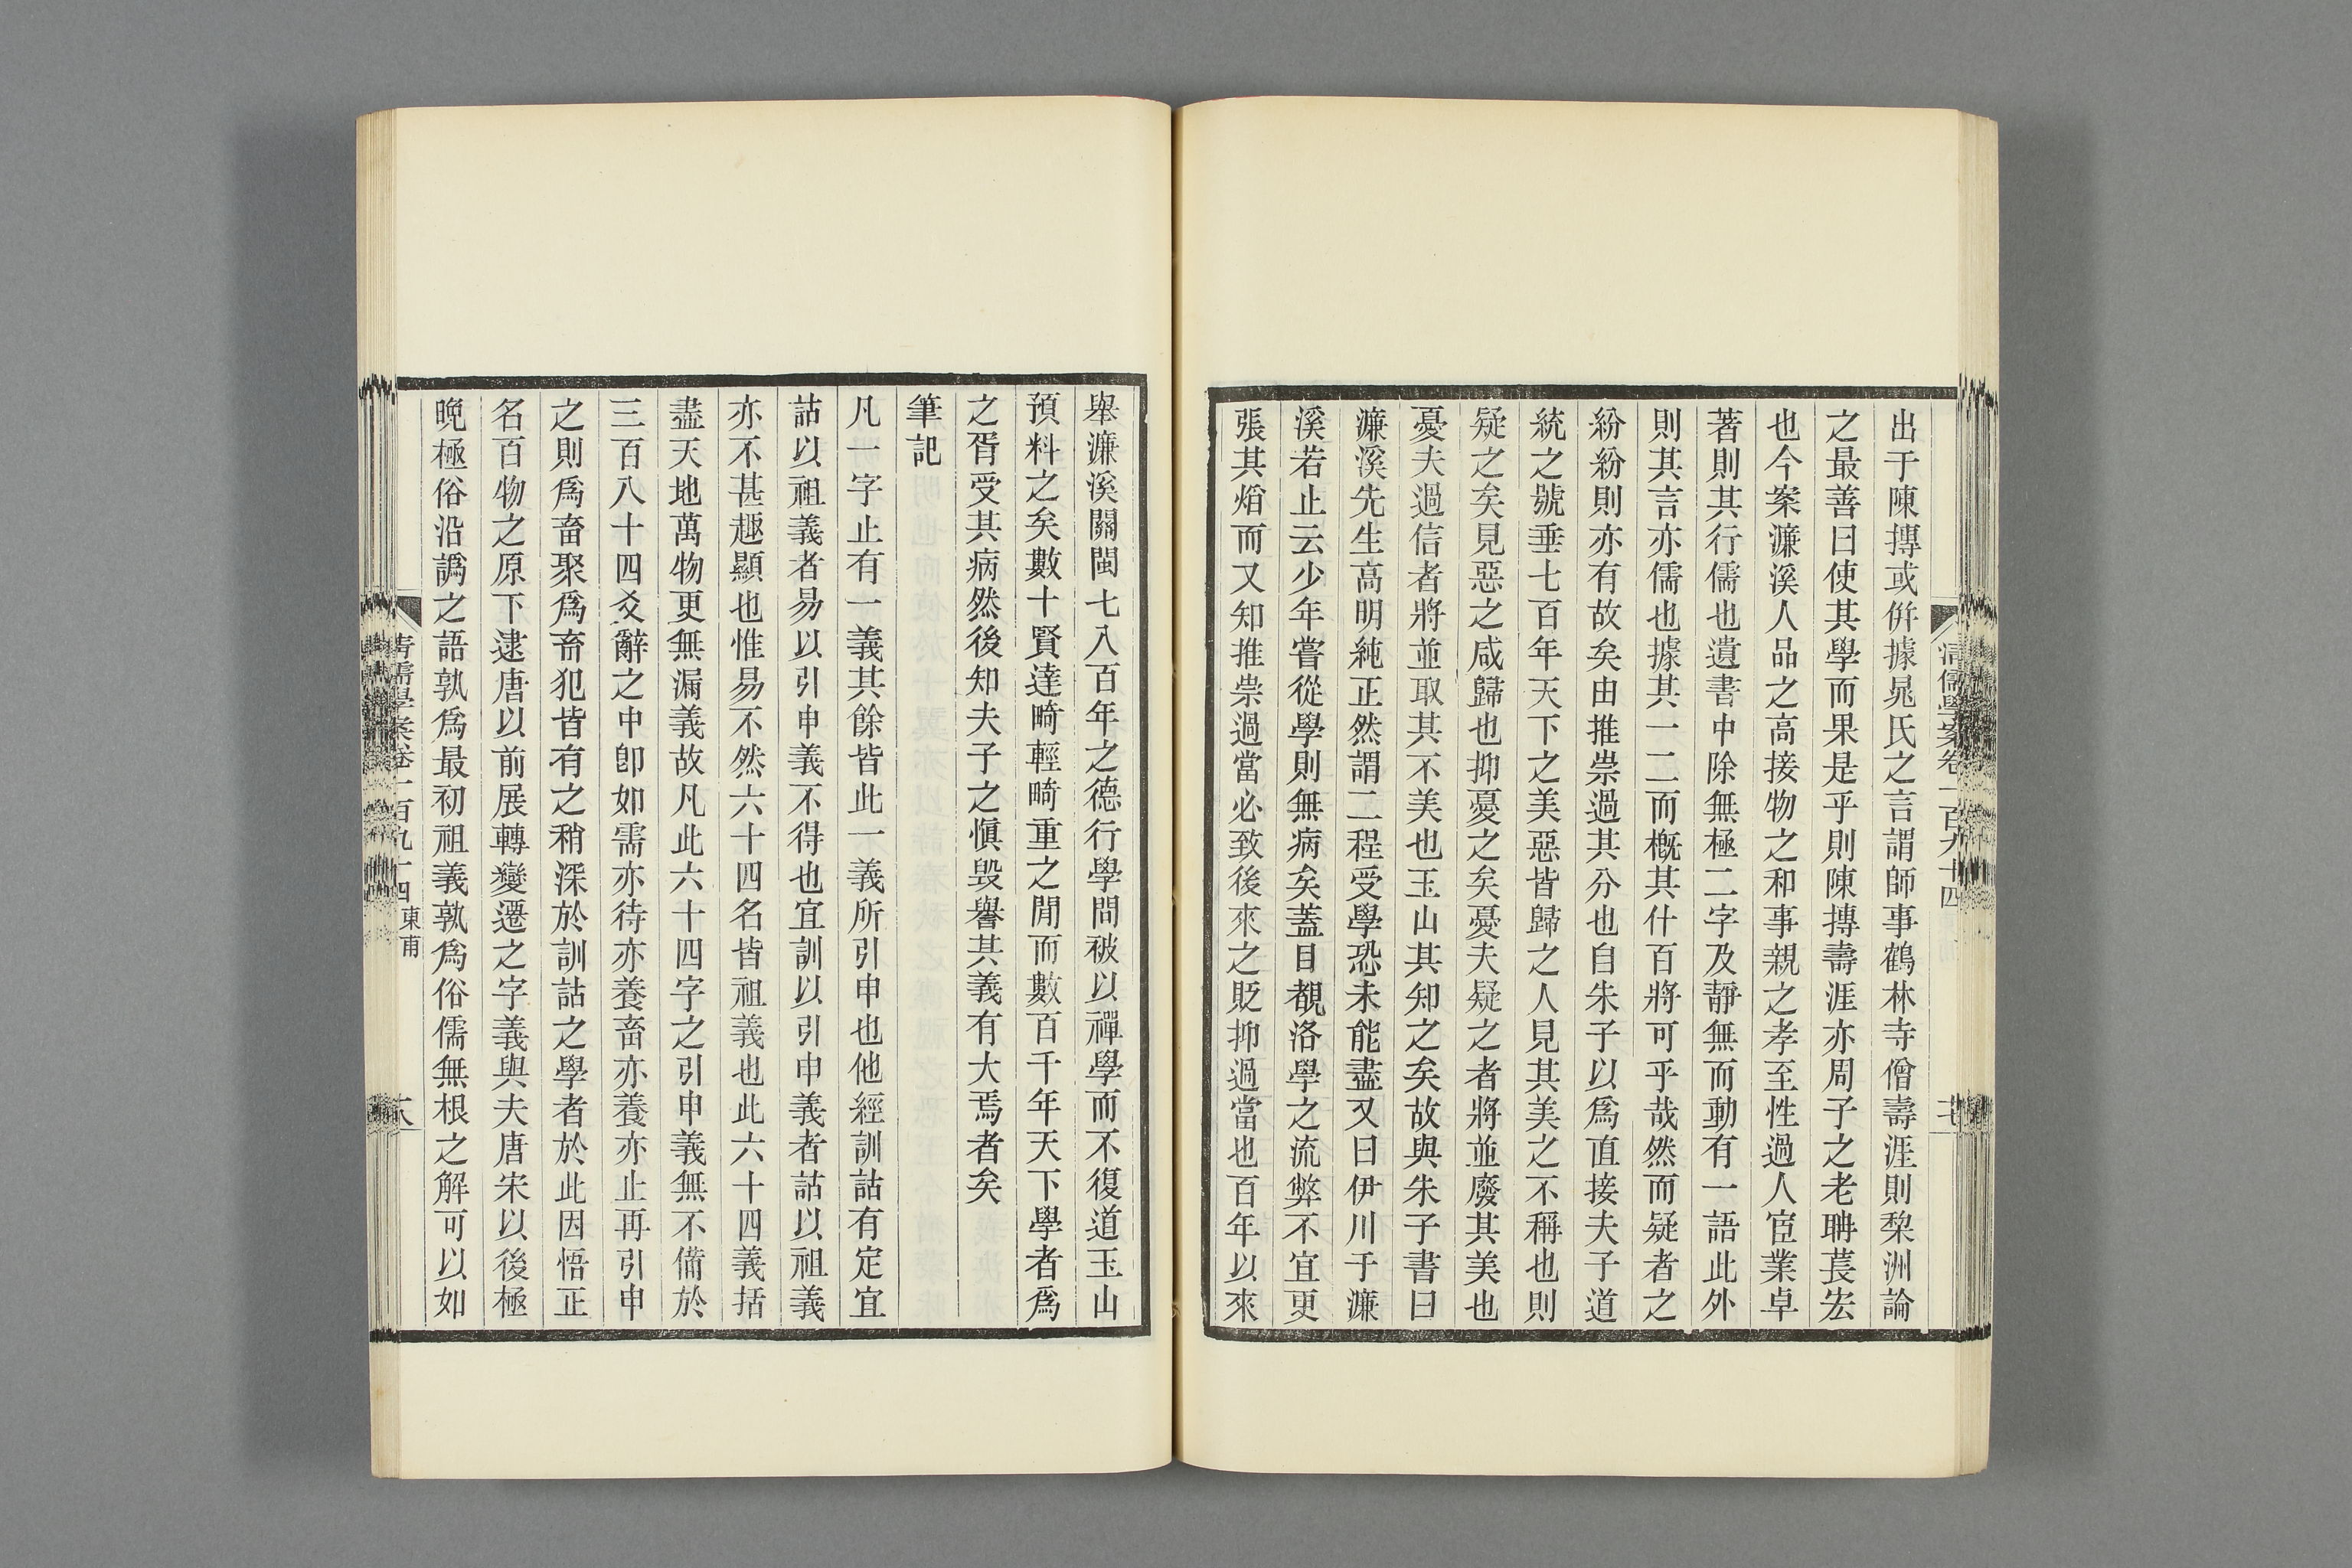 出于陳摶或併據晁氏之言謂師事鶴林寺僧壽涯則棃洲論
之最善曰使其學而果是乎則陳摶壽涯亦周子之老聃萇宏
也今案濂溪人品之高接物之和事親之孝至性過人宦業卓
著則其行儒也遺書中除無極二字及靜無而動有一語此外
則其言亦儒也據其一二而槪其什百將可乎哉然而疑者之
紛紛則亦有故矣由推崇過其分也自朱子以爲直接夫子道
統之號垂七百年天下之美惡皆歸之人見其美之不稱也則
疑之矣見惡之咸歸也抑憂之矣憂夫疑之者將並廢其美也
憂夫過信者將並取其不美也玉山其知之矣故與朱子書曰
濂溪先生高明純正然謂二程受學恐未能盡又曰伊川于濂
溪若止云少年嘗從學則無病矣蓋目覩洛學之流弊不宜更
張其焰而又知推崇過當必致後來之貶抑過當也百年以來
清儒學案卷一百九十四
舉濂溪關閩七八百年之德行學問被以禪學而不復道玉山
預料之矣數十賢達畸輕畸重之閒而數百千年天下學者爲
之胥受其病然後知夫子之愼毀譽其義有大焉者矣
筆記
凡一字止有一義其餘皆此一義所引申也他經訓詁有定宜
詁以祖義者易以引申義不得也宜訓以引申義者詁以祖義
亦不甚趣顯也惟易不然六十四名皆祖義也此六十四義括
盡天地萬物更無漏義故凡此六十四字之引申義無不備於
三百八十四爻辭之中卽如需亦待亦養畜亦養亦止再引申
之則爲畜聚爲畜犯皆有之稍深於訓詁之學者於此因悟正
名百物之原下逮唐以前展轉變遷之字義與夫唐宋以後極
晚極俗沿譌之語孰爲最初祖義孰爲俗儒無根之解可以如
清儒學案卷一百九十四 東甫
十八